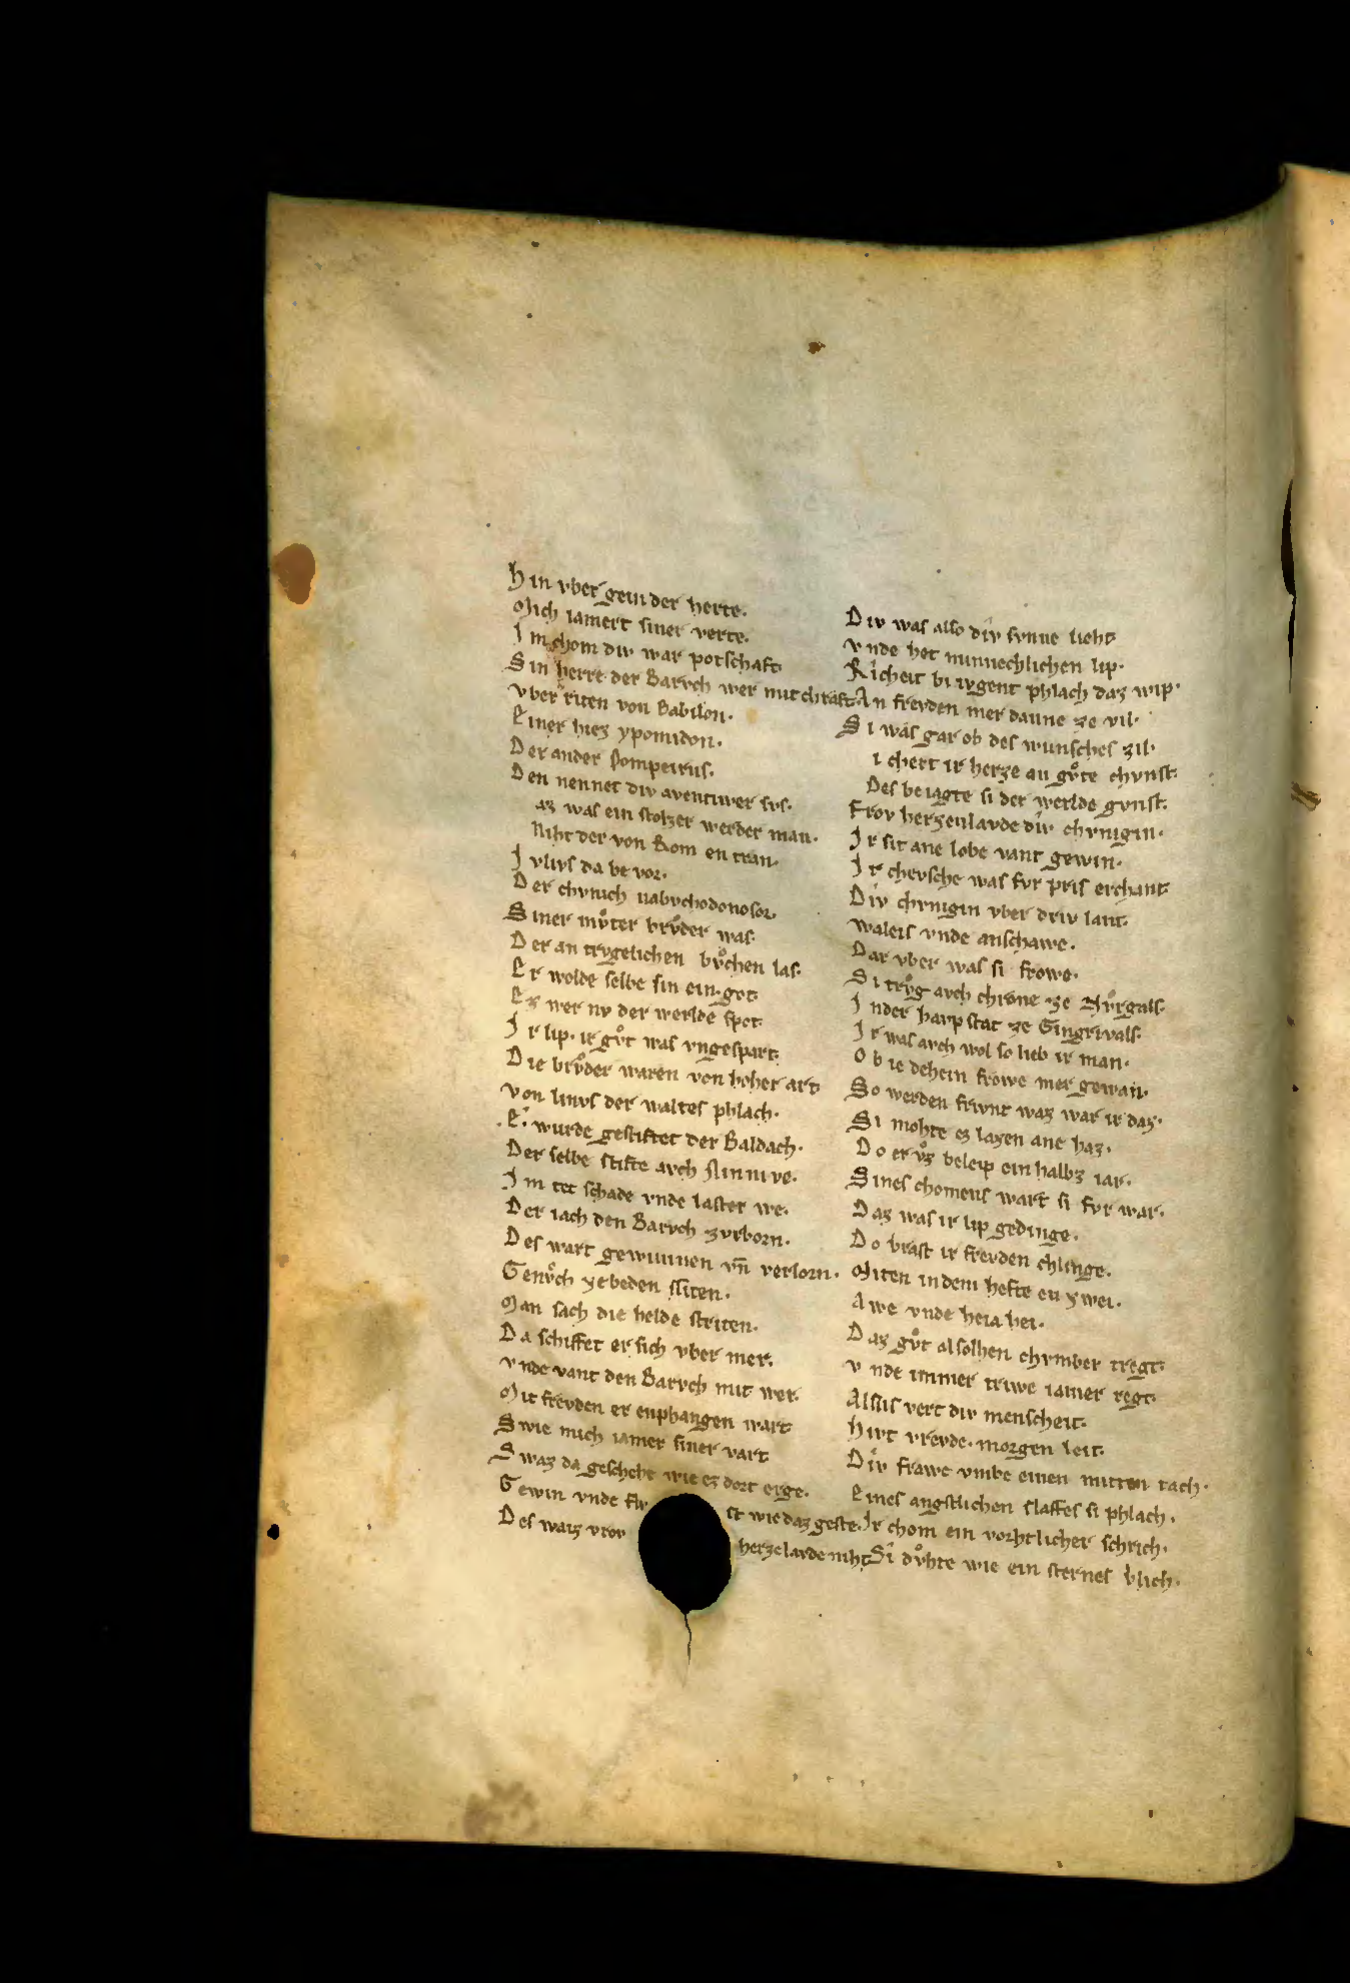 Hin vber gein der herte.
Mich iamert siner verte.
Im chom div war potschaft
Sin herre der Barvch wer mit chraft.
Vber riten von Babilon.
Einer hiez ypomidon.
Der ander Pompeirus.
Den nennet div aventiwer svs.
az was ein stolzer werder man.
Niht der von Rom entran.
Ivlivs da bevor.
Der chvnich nabvchodonosor.
Siner mvͦter brvͦder was.
Der an trvgelichen bvͦchen las.
Er wolde selbe sin ein got
Ez wer nv der werlde spot.
Ir lip. ir gvͦt was vngespart.
Die brvͦder waren von hoher art
Von linvs der waltes phlach.
E. wurde gestiftet der Baldach.
Der selbe stifte avch Ninnive.
Im tet schade vnde laster we.
Der iach den Barvch zvrborn.
Des wart gewunnen vn̄ verlorn.
Genvͦch zebeden siten.
Man sach die helde striten.
Da schiffet er sich vber mer.
Vnde vant den Barvch mit wer.
Mit frevden er enphangen wart
Swie mich iamer siner vart
Swaz da geschehe wie ez dort erge.
Gewin vnde flv st wie daz geste.
Des waiz vrov herzelavde niht
Div was also div svnne lieht
Vnde het minnechlichen lip.
Richeit bi ivgent phlach daz wip.
An frevden mer danne ze vil.
Si was gar ob des wunsches zil.
i chert ir herze an gvͦte chvnst.
Des beiagte si der werlde gvnst.
Frov herzenlavde div chvnigin.
Ir sit ane lobe vant gewin.
Ir chevsche was fvr pris erchant
Div chvnigin vber driv lant.
Waleis vnde anschawe.
Dar vber was si frowe.
Si trvͦg avch chrone ze Nvͦrgals.
In der havpstat ze Gingrivals.
Ir was avch wol so lieb ir man.
Ob ie dehein frowe mer gewan.
So werden frivnt waz war ir daz.
Si mohte ez lazen ane haz.
Do er vͦz beleip ein halbz iar.
Sines chomens wart si fvr war.
Daz was ir lip gedinge.
Do brast ir frevden chlinge.
Miten in dem hefte en zwei.
Awe vnde heia hei.
Daz gvͦt alsolhen chvmber tregt.
Vnde immer triwe iamer regt.
Alsus vert div menscheit.
Hivt vrevde. morgen leit.
Div frawe vmbe einen mitten tach.
Eines angstlichen slaffes si phlach.
Ir chom ein vorhtlicher schrich.
Si dvͦhte wie ein sternes blich.